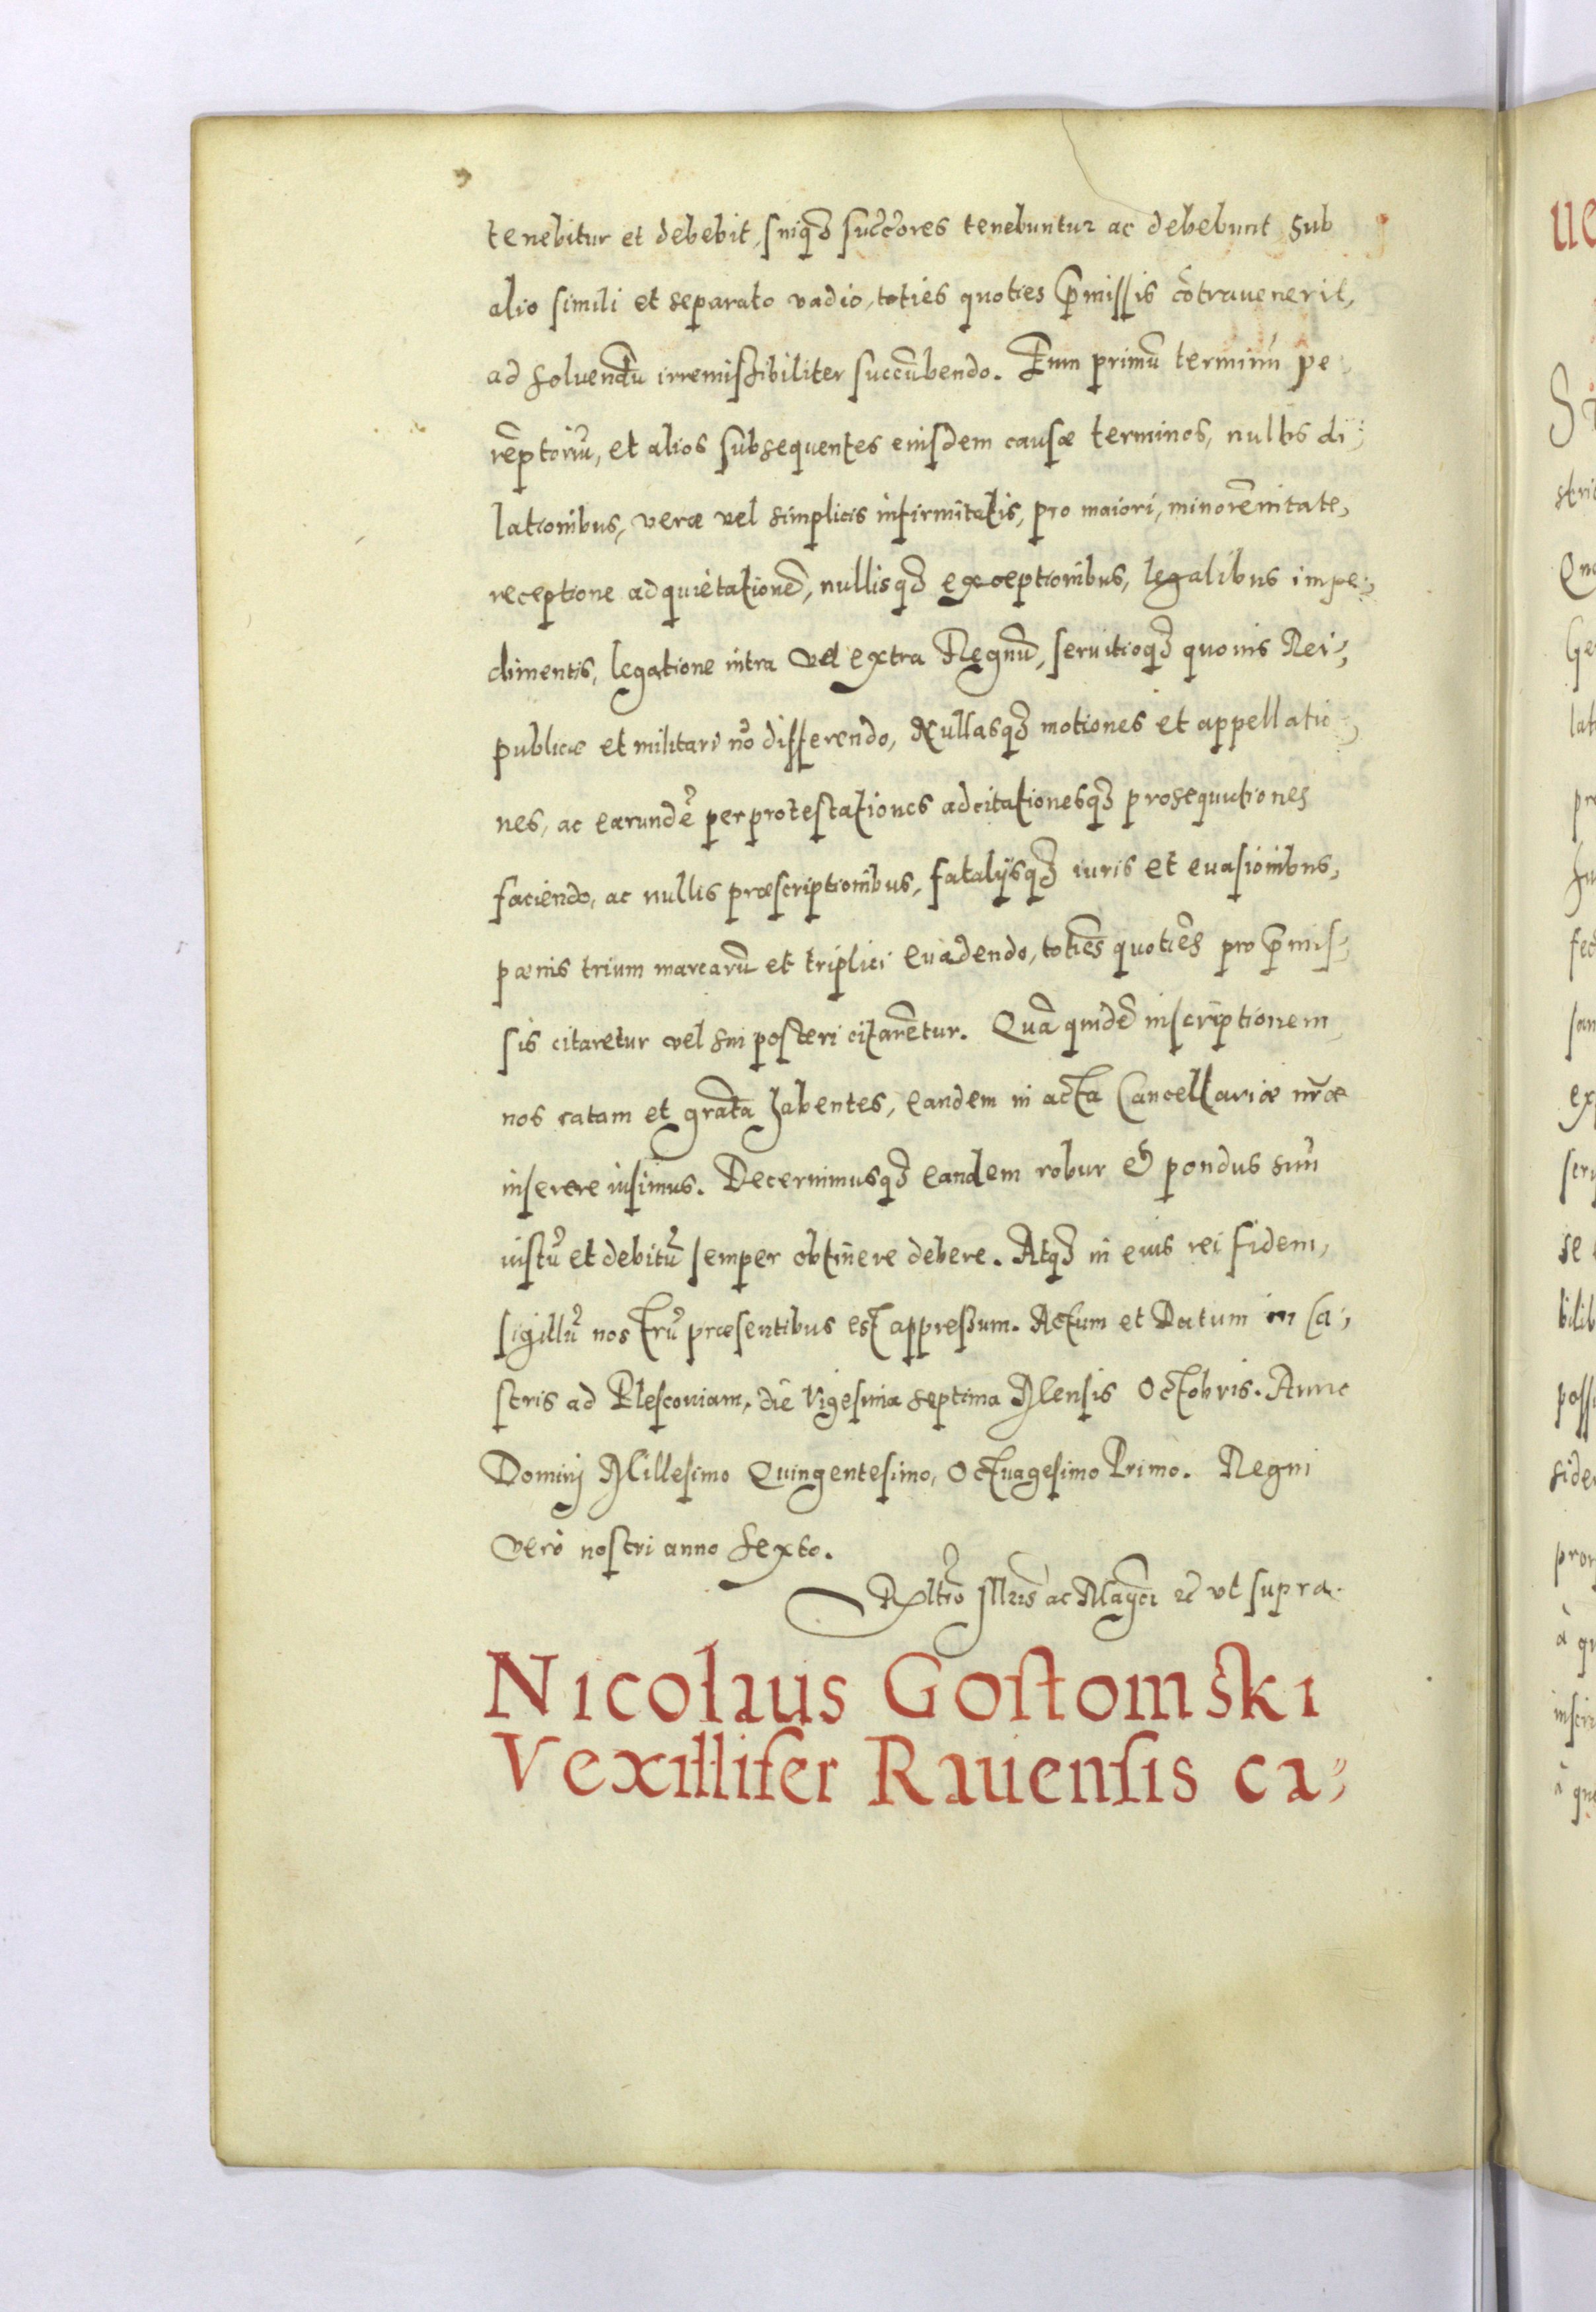 tenebitur et debebit, suiqȝ succ̃ores tenebuntur ac debebunt sub
alio simili et separato vadio, toties quoties p̃missis cõtrauenerit,
ad soluendũ irremissibiliter succũbendo. Eum primũ terminũ pe-
rẽptoriũ, et alios subsequentes eiusdem causæ terminos, nullis di-
lationibus, veræ vel simplicis infirmitatis, pro maiori, minorẽnitate,
receptione ad quietationẽ, nullisqȝ exceptionibus, legalibus impe-
dimentis, legatione intra vel extra Regnũ, seruitioqȝ quouis Rei-
publicæ et militari nõ differendo, Nullasqȝ motiones et appellatio-
nes, ac earundẽ per protestationes ad citationesqȝ prosequutiones
faciendo, ac nullis præscriptionibus, fatalijsqȝ iuris et euasionibus,
pœnis trium marcarũ et triplici euadendo, totiẽs quotiẽs pro p̃mis-
sis citaretur vel sui posteri citarẽtur. Quã quidẽ inscriptionem
nos ratam et gratã habentes, eandem in acta Cancellariæ nr̃æ
inserere iusimus. Decernimusqȝ eandem robur et pondus suũ
iustũ et debitũ semper obtinere debere. Atqȝ in eius rei fidem,
sigillũ nostrũ præsentibus est appressum. Actum et Datum in Ca-
stris ad Plescouiam, die Vigesima septima Mensis Octobris. Anno
Domini Millesimo Quingentesimo, Octuagesimo Primo. Regni
vero nostri anno sexto.
Rltĩo Illris̃ ac Magc̃i &c̃ vt supra.
Nicolaus Gostomski
Vexillifer Rauensis ca-